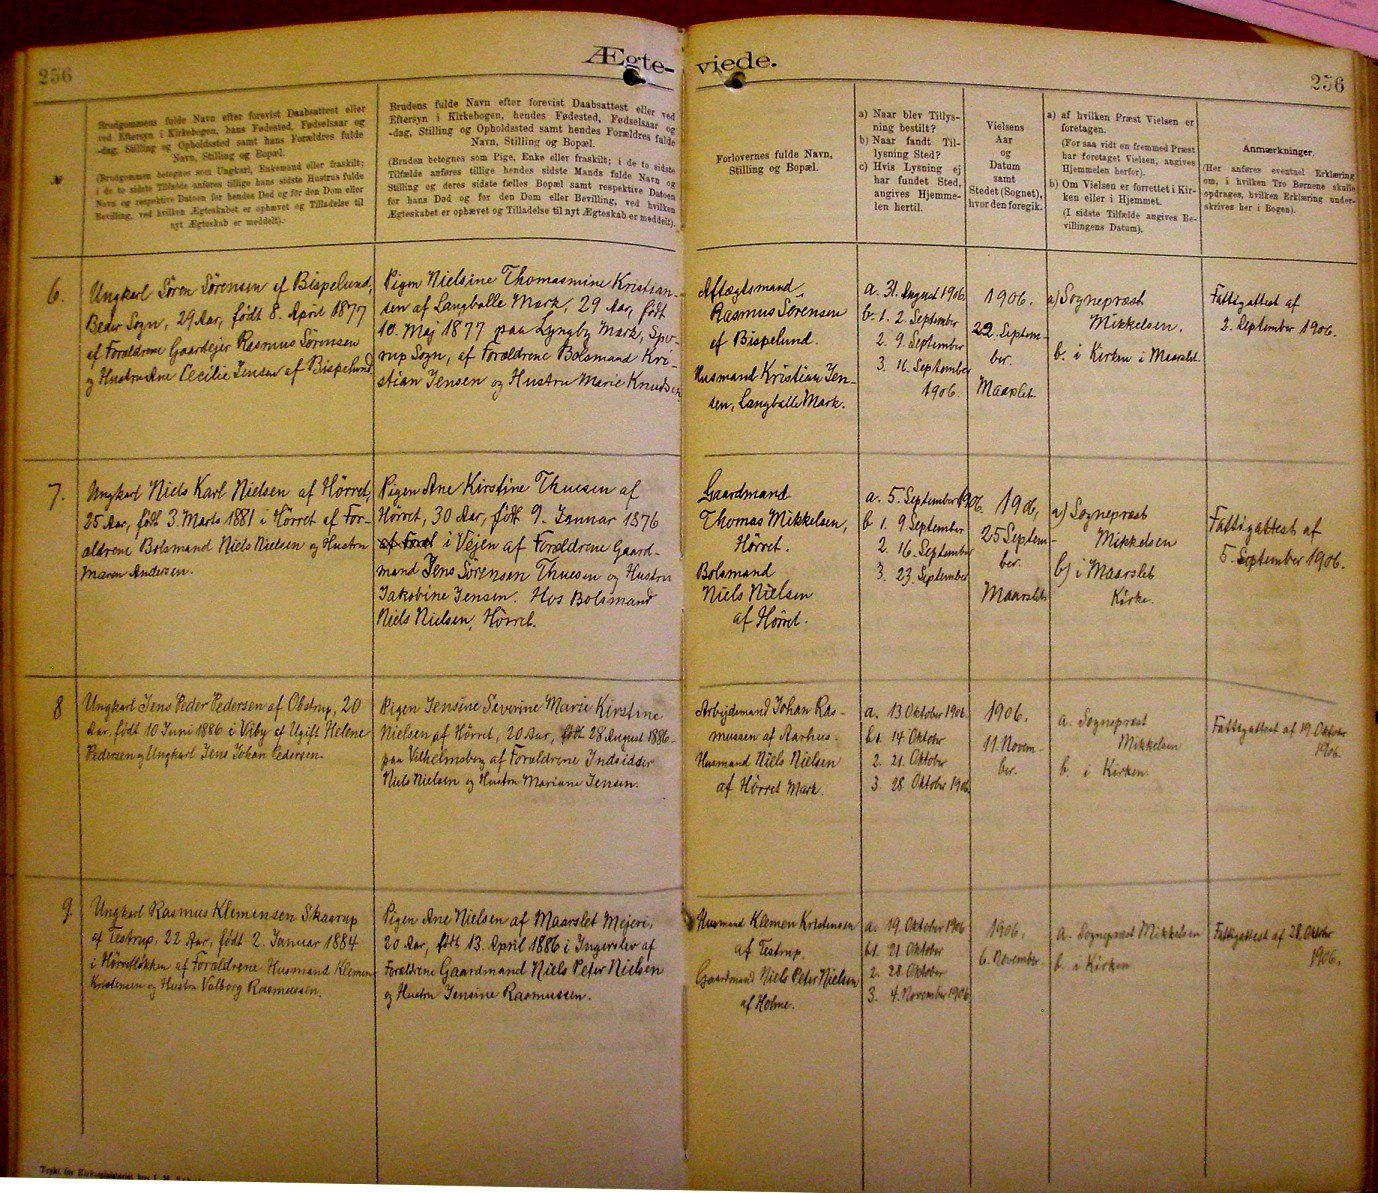 256
Ægte-
viede.
256
№
Brudgommens fulde Navn efter forevist Daabsattest eller
ved Eftersyn i Kirkebogen, hans Fødested, Fødselsaar og
-dag, Stilling og Opholdssted samt hendes Forældres fulde
Navn, Stilling og Bopæl.
(Brudgommen betegnes som Ungkarl, Enkemand eller fraskilt;
i de to sidste Tilfælde anføres tillige hans sidste Hustrus fulde
Navn og respektive Datoen for hendes Død og for den Dom eller
Bevilling, ved hvilken Ægteskabet er ophævet og Tilladelse til
nyt Ægteskab er meddelt).
Brudens fulde Navn efter forevist Daabsattest eller ved
Eftersyn i Kirkebogen, hendes Fødested, Fødselsaar og
-dag, Stilling og Opholdssted samt hendes Forældres fulde
Navn, Stilling og Bopæl.
(Bruden betegnes som Pige, Enke eller fraskilt; i de to sidste
Tilfælde anføres tillige hendes sidste Mands fulde Navn og
Stilling og deres sidste fælles Bopæl samt respektive Datoen
for hans Død og for den Dom eller Bevilling, ved hvilken
Ægteskabet er ophævet og Tilladelse til nyt Ægteskab er meddelt).
Forlovernes fulde Navn,
Stilling og Bopæl.
a) Naar blev Tillys-
ning bestilt?
b) Naar fandt Til-
lysning Sted?
c) Hvis Lysning ej
har fundet Sted,
angives Hjemme-
len hertil.
Vielsens
Aar
og
Datum
samt
Stedet (Sognet),
hvor den foregik.
a) af hvilken Præst Vielsen er
foretagen.
(For saa vidt en fremmed Præst
har foretaget Vielsen, angives
Hjemmelen herfor).
b) Om Vielsen er forrettet i Kir-
ken eller i Hjemmet.
(I sidste Tilfælde angives Be-
villingens Datum).
Anmærkninger,
(Her anføres eventuel Erklæring
om, i hvilken Tro Børnene skulle
opdrages, hvilken Erklæring under-
skrives her i Bogen).
6.
Ungkarl Søren Sörensen af Bispelund,
Beder Sogn, 29 Aar, født 8. April 1877
af Forældrene Gaardejer Rasmus Sörensen
og Hustru Ane Cecilie Jensen af Bispelund
Pigen Nielsine Thomasmine Kristian-
sen af Langballe Mark, 29 Aar, født
10. Maj 1877 paa Lyngby Mark, Spø-
rup Sogn, af Forældrene Bolsmand Kri-
stian Jensen og Hustru Marie Knudsen
Aftægtsmand
Rasmus Sörensen
af Bispelund.
Husmand Kristian Jen-
sen, Langballe Mark.
a. 31. August 1906.
b. 1. 2. September
2. 9. September
3. 16. September
1906.
1906.
22. Septem-
ber.
Maarslet
a) Sognepræst
Mikkelsen.
b. i Kirken i Maarslet
Fattigattest af
2. September 1906.
7.
Ungkarl Niels Karl Nielsen af Hörret,
25 Aar, født 3. Marts 1881 i Hörret af For-
ældrene Bolsmand Niels Nielsen og Hustru
Maren Andersen.
Pigen Ane Kirstine Thuesen af
Hörret, 30 Aar, født 9. Januar 1876
af Foræl i Vejen af Forældrene Gaard-
mand Jens Sörensen Thuesen og Hustru
Jakobine Jensen. Hos Bolsmand
Niels Nielsen, Hörret.
Gaardmand
Thomas Mikkelsen,
Hörret.
Bolsmand
Niels Nielsen
af Hörret.
a. 5. September 1906.
b 1. 9 September
2. 16. September
3. 23. September
1906,
25 Septem-
ber.
Maarslet
a) Sognepræst
Mikkelsen
b) i Maarslet
Kirke.
Fattigattest af
5. September 1906.
8
Ungkarl Jens Peder Pedersen af Obstrup, 20
Aar, født 10 Juni 1886 i Viby af Ugift Helene
Pedersen og Ungkarl Jens Johan Pedersen
Pigen Jensine Severine Marie Kirstine
Nielsen af Hörret, 20 Aar, født 28 August 1886
paa Vilhelmsborg af Forældrene Indsidder
Niels Nielsen og Hustru Mariane Jensen.
Arbejdsmand Johan Ras-
mussen af Aarhus.
Husmand Niels Nielsen
af Hörret Mark.
a. 13 Oktober 1906.
b 1. 14 Oktober
2. 21. Oktober
3. 28 Oktober 1906.
1906.
11. Novem-
ber.
a. Sognepræst
Mikkelsen
b i Kirken
Fattigattest af 19. Oktober
1906.
9.
Ungkarl Rasmus Klemensen Skaarup
af Testrup, 22 Aar, født 2. Januar 1884
i Hörretløkken af Forældrene Husmand Klemen
Kristensen og Hustru Valborg Rasmussen.
Pigen Ane Nielsen af Maarslet Mejeri,
20 Aar, født 13. April 1886 i Ingerslev af
Forældrene Gaardmand Niels Peter Nielsen
og Hustru Jensine Rasmussen.
Husmand Klemen Kristensen
af Testrup,
Gaardmand Niels Peter Nielsen
af Holme.
a. 19. Oktober 1906
b 1. 21 Oktober
2. 28 Oktober
3. 4. November 1906
1906.
6. November
a. Sognepræst Mikkelsen
b i Kirken
Fattigattest af 28. Oktober
1906.
Trykt for Kirkeministeriet hos J. H.